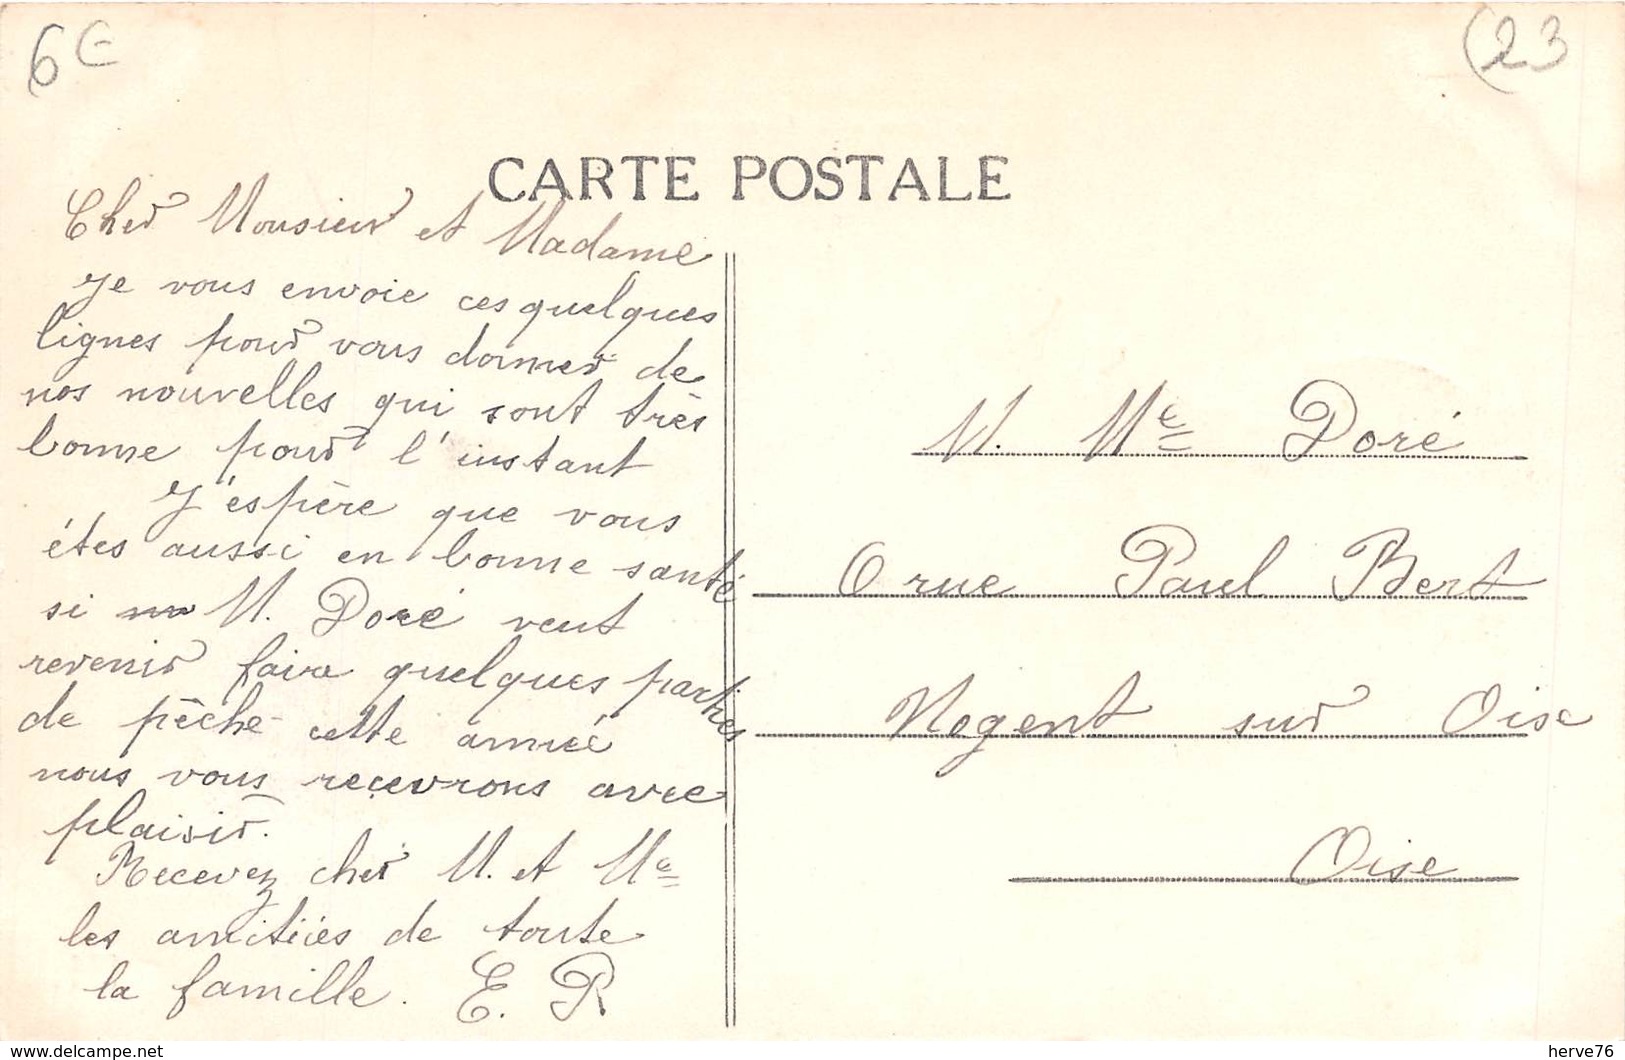 6€
(23
CARTE POSTALE
Cher Monsieur et Madame
Je vous envoie ces quelques
lignes pour vous donner de
nos nouvelles qui sont très
bonne pour l'instant
J'espère que vous
étes aussi en bonne santé
si M. Doré veut
revenir faire quelques parties
de pêche cette année
nous vous recevrons avec
plaisir.
Recevez cher M. et Me
les amitiés de toute
la famille. E. R
M. Me Doré
6 rue Paul Bert
Nogent sur Oise
Oise
http://www.delcampe.net
herve76